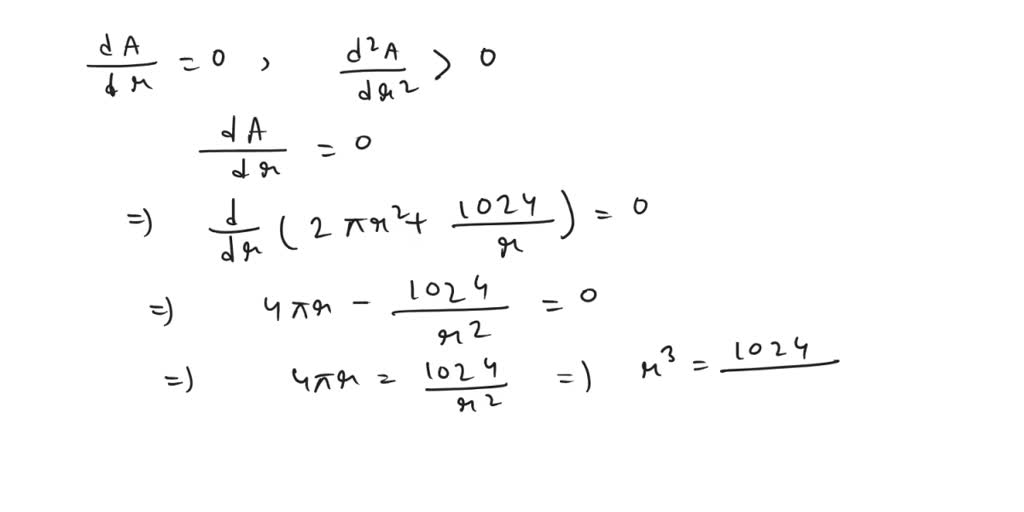 dA/dr = 0 , d²A/dr² > 0
dA/dr = 0
=) d/dr ( 2πr² + 1024/r ) = 0
=) 4πr - 1024/r² = 0
=) 4πr = 1024/r² =) r³ = 1024/